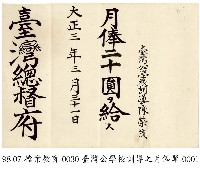 臺灣公學校訓導陳榮茂
月俸二十圓ヲ給ス
大正三年三月三十一日
臺灣總督府
98.07 檔案教育 0030 臺灣公學校訓導之月俸單 0001